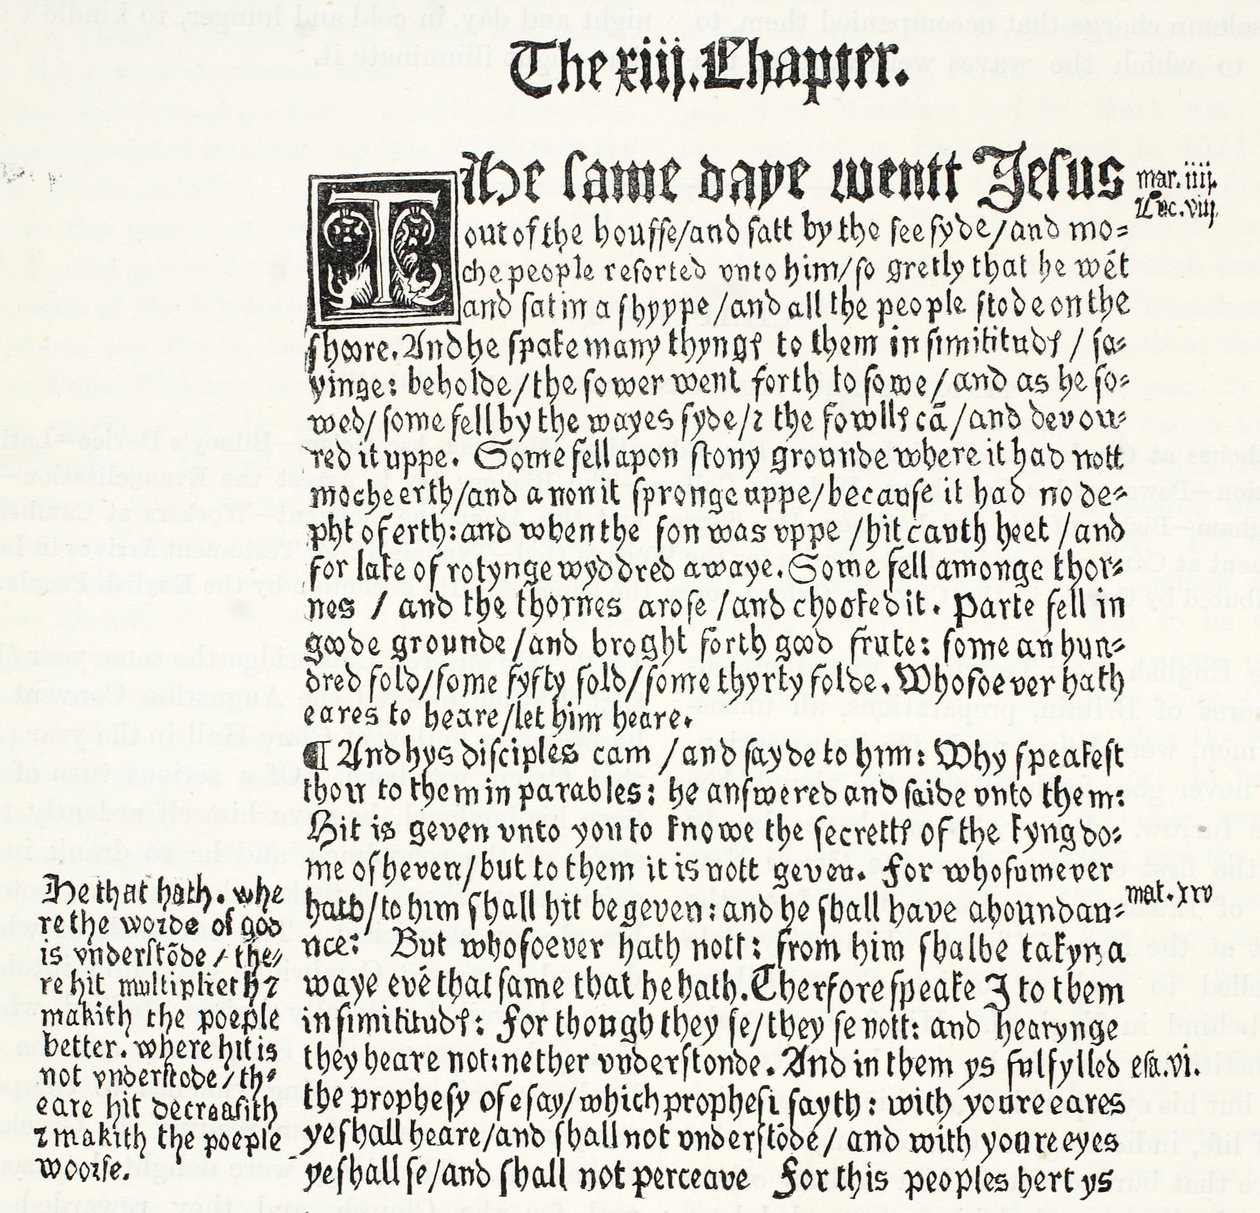 The xiij. Chapter.
The same daye wentt Jesus
mar. iiij.
Luc. viij.
out of the housse/and satt by the see syde/and mo⸗
che people resorted vnto him/so gretly that he wēt
and sat in a shyppe/and all the people stode on the
shoore. And he spake many thyngꝭ to them in similitudꝭ / sa⸗
yinge: beholde/the sower went forth to sowe/and as he so⸗
wed/some fell by the wayes syde/⁊ the fowllꝭ cā/and devou⸗
red it uppe. Some fell apon stony grounde where it had nott
moche erth/and a non it spronge uppe/because it had no de⸗
pht of erth: and when the son was vppe /hit cauth heet /and
for lake of rotynge wyddred awaye. Some fell amonge thor⸗
nes / and the thornes arose /and chooked it. Parte fell in
goode grounde/and broght forth good frute: some an hun⸗
dred fold/some fyfty fold/some thyrty folde. Whosoever hath
eares to heare/let him heare.
¶ And hys disciples cam /and sayde to hym: Why speakest
thou to them in parables: he answered and saide vnto them:
Hit is geven vnto you to knowe the secrettꝭ of the kyngdo⸗
me of heven/but to them it is nott geven. For whosumever
hath/to him shall hit be geven: and he shall have aboundan⸗
mat. xxv
nce: But whosoever hath nott: from him shalbe takyn a
waye evē that same that he hath. Therfore speake I to them
in similitudꝭ: For though they se/they se nott: and hearynge
they heare not: nether vnderstonde. And in them ys fulfylled
esa. vi.
the prophesy of esay/which prophesi sayth: with youre eares
ye shall heare/and shall not vnderstōde/ and with youre eyes
ye shall se/and shall not perceave For this peoples hert ys
He that hath. whe
re the worde of god
is vnderstōde / the⸗
re hit multiplieth ⁊
makith the poeple
better. where hit is
not vnderstode / the⸗
eare hit decreasith
⁊ makith the poeple
woorse.